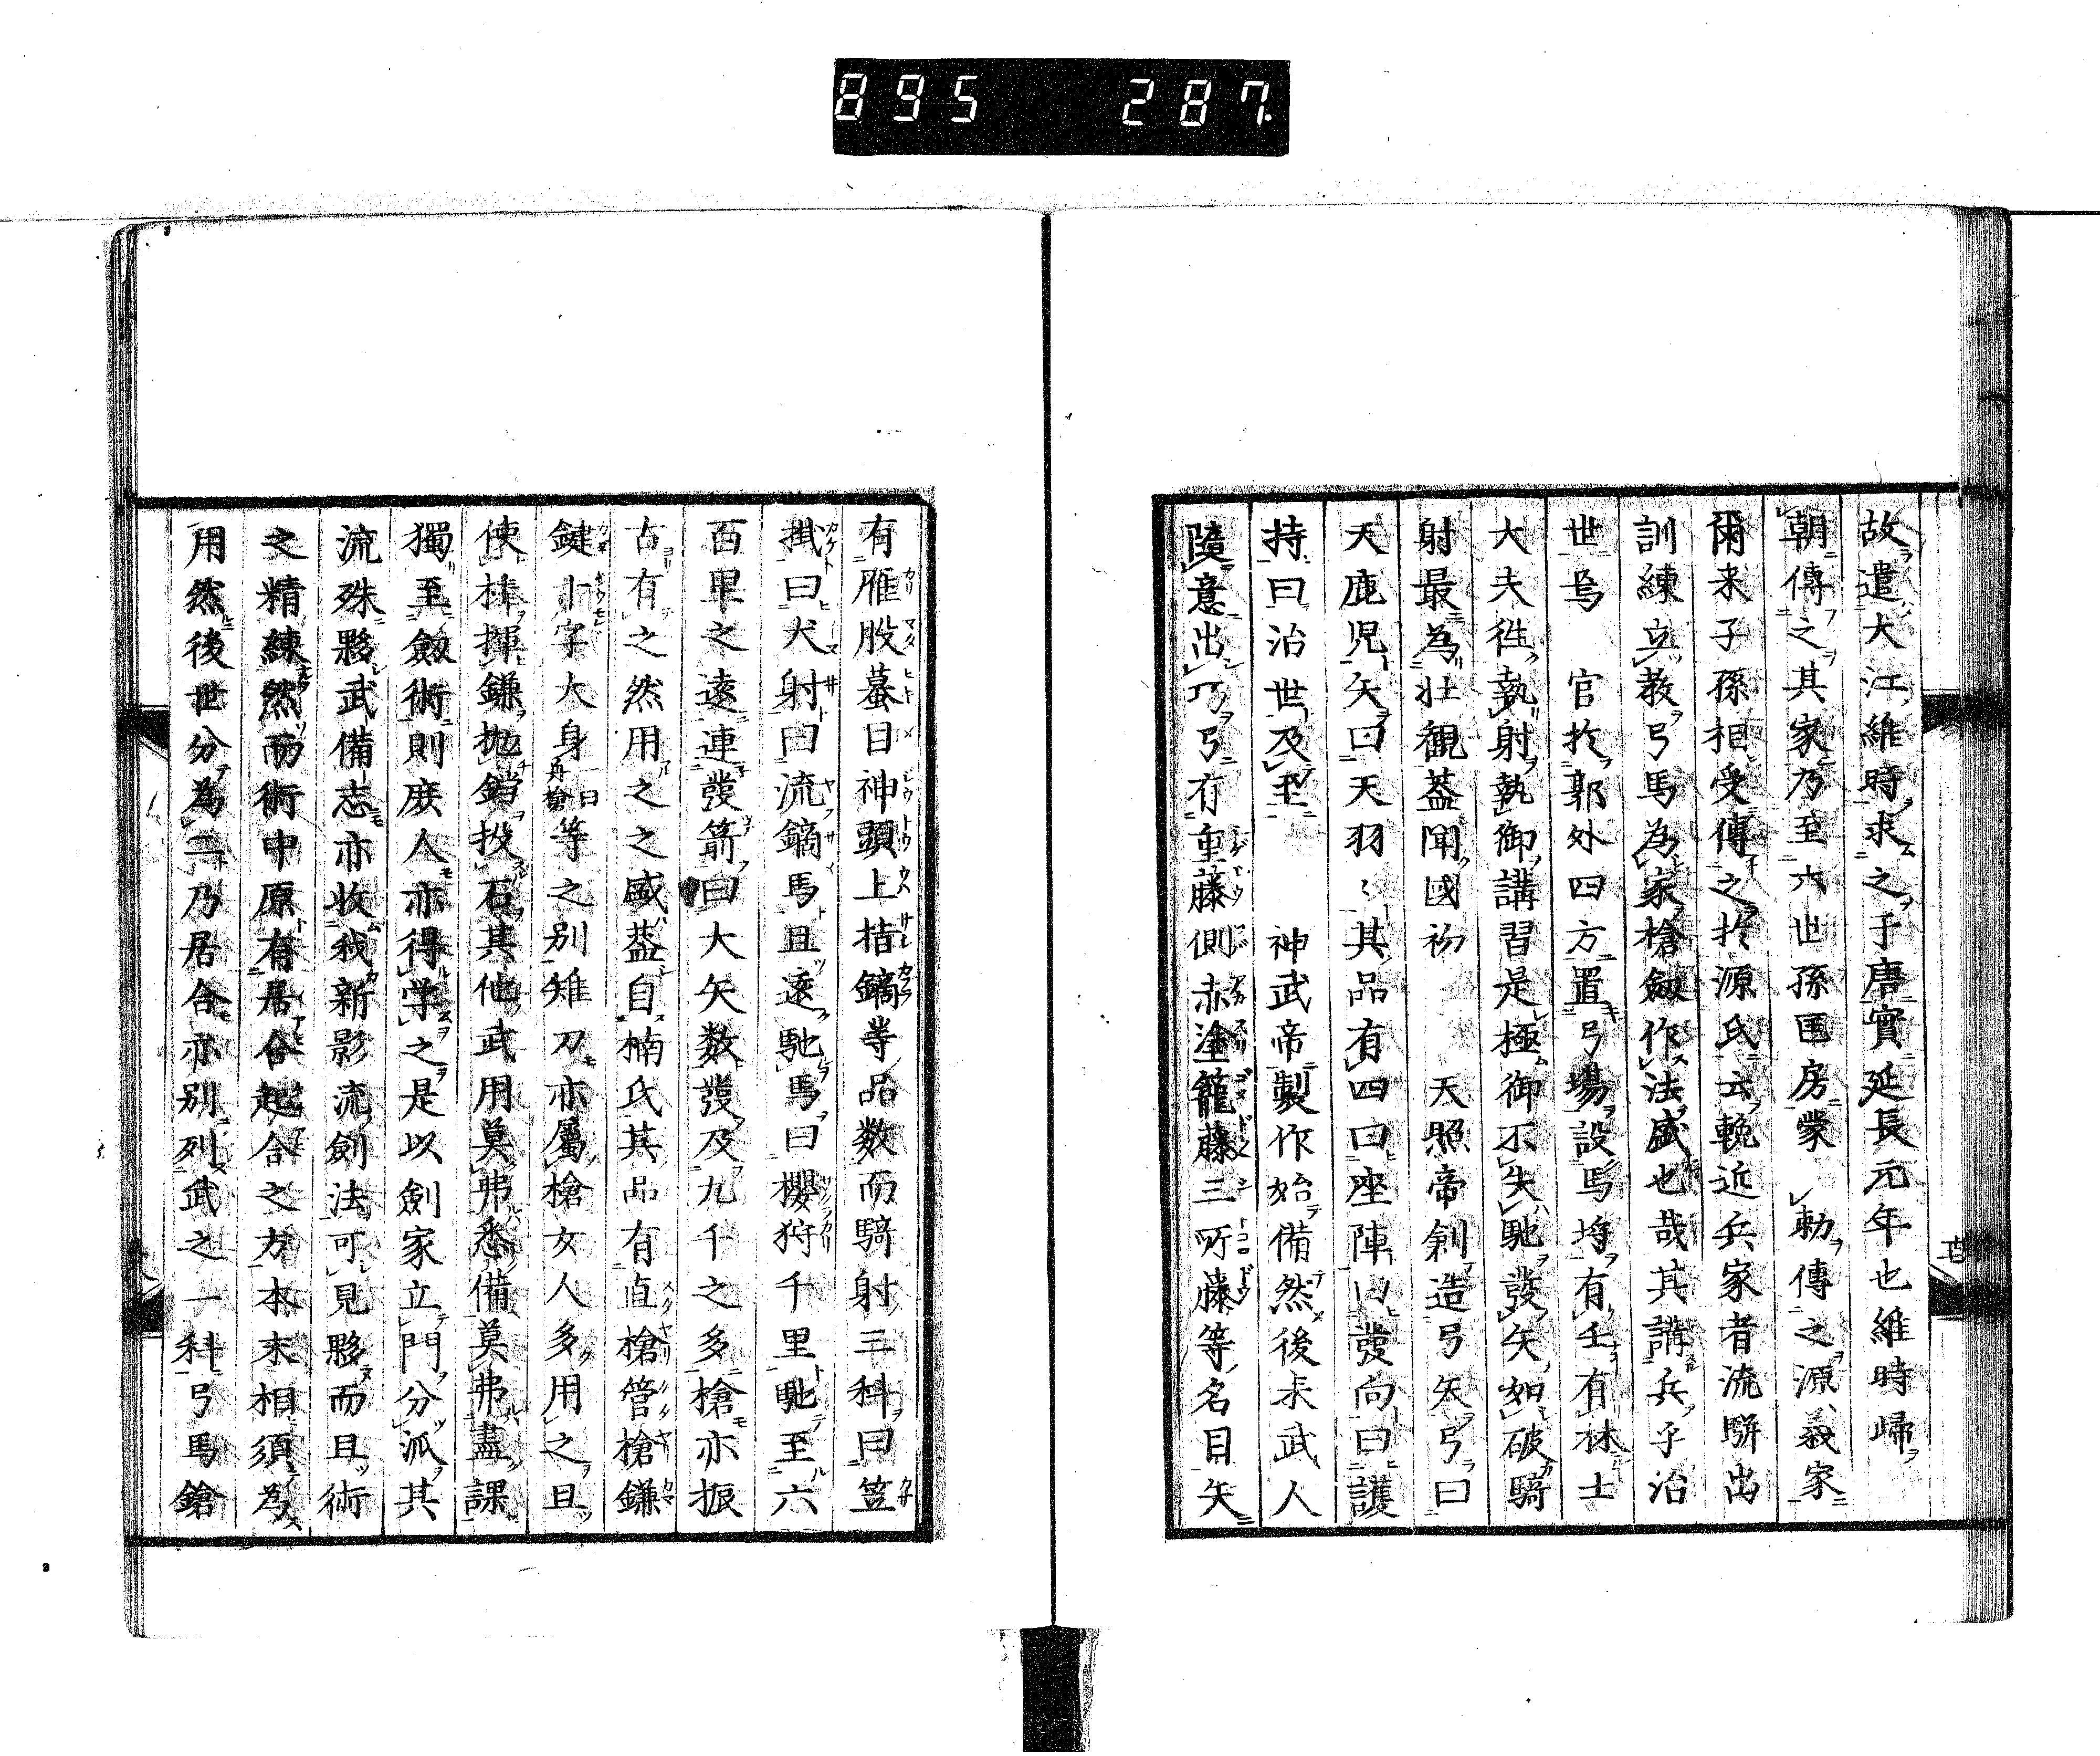 895 287
故遣大江維時求之于唐實延長元年也維時歸
朝傳之其家乃至六世孫匡房蒙 勅傳之源義家
爾来子孫相受傳之於源氏云輓近兵家者流駢出
訓練立教弓馬為家槍劔作法盛也哉其講兵于治
世焉 官於郭外四方置弓場設馬埒有壬有林士
大夫徃執射執御講習是極御不失馳發矢如破騎
射最為壮観盖聞國初 天照帝創造弓矢弓曰
天鹿児矢曰天羽〻其品有四曰座陣曰發向曰護
持曰治世及至 神武帝製作始備然後来武人
随意出巧弓有重藤側赤塗籠藤三所藤等名目矢
有雁股蟇目神頭上栝鏑等品数而騎射三科曰笠
掛曰犬射曰流鏑馬且遠馳馬曰櫻狩千里馳至六
百里之遠連發箭曰大矢数發及九千之多槍亦振
古有之然用之之盛盖自楠氏其品有直槍管槍鎌
鍵十字大身一曰再槍等之別雉刀亦屬槍女人多用之且
使棒揮鎌抛鎖投石其他武用莫弗悉備莫弗盡課
獨至劔術則庶人亦得学之是以劍家立門分派其
流殊夥武備志亦收我新影流劍法可見夥而且術
之精練然而術中原有居合起合之方本末相須為
用然後世分為二乃居合亦別列武之一科弓馬鎗